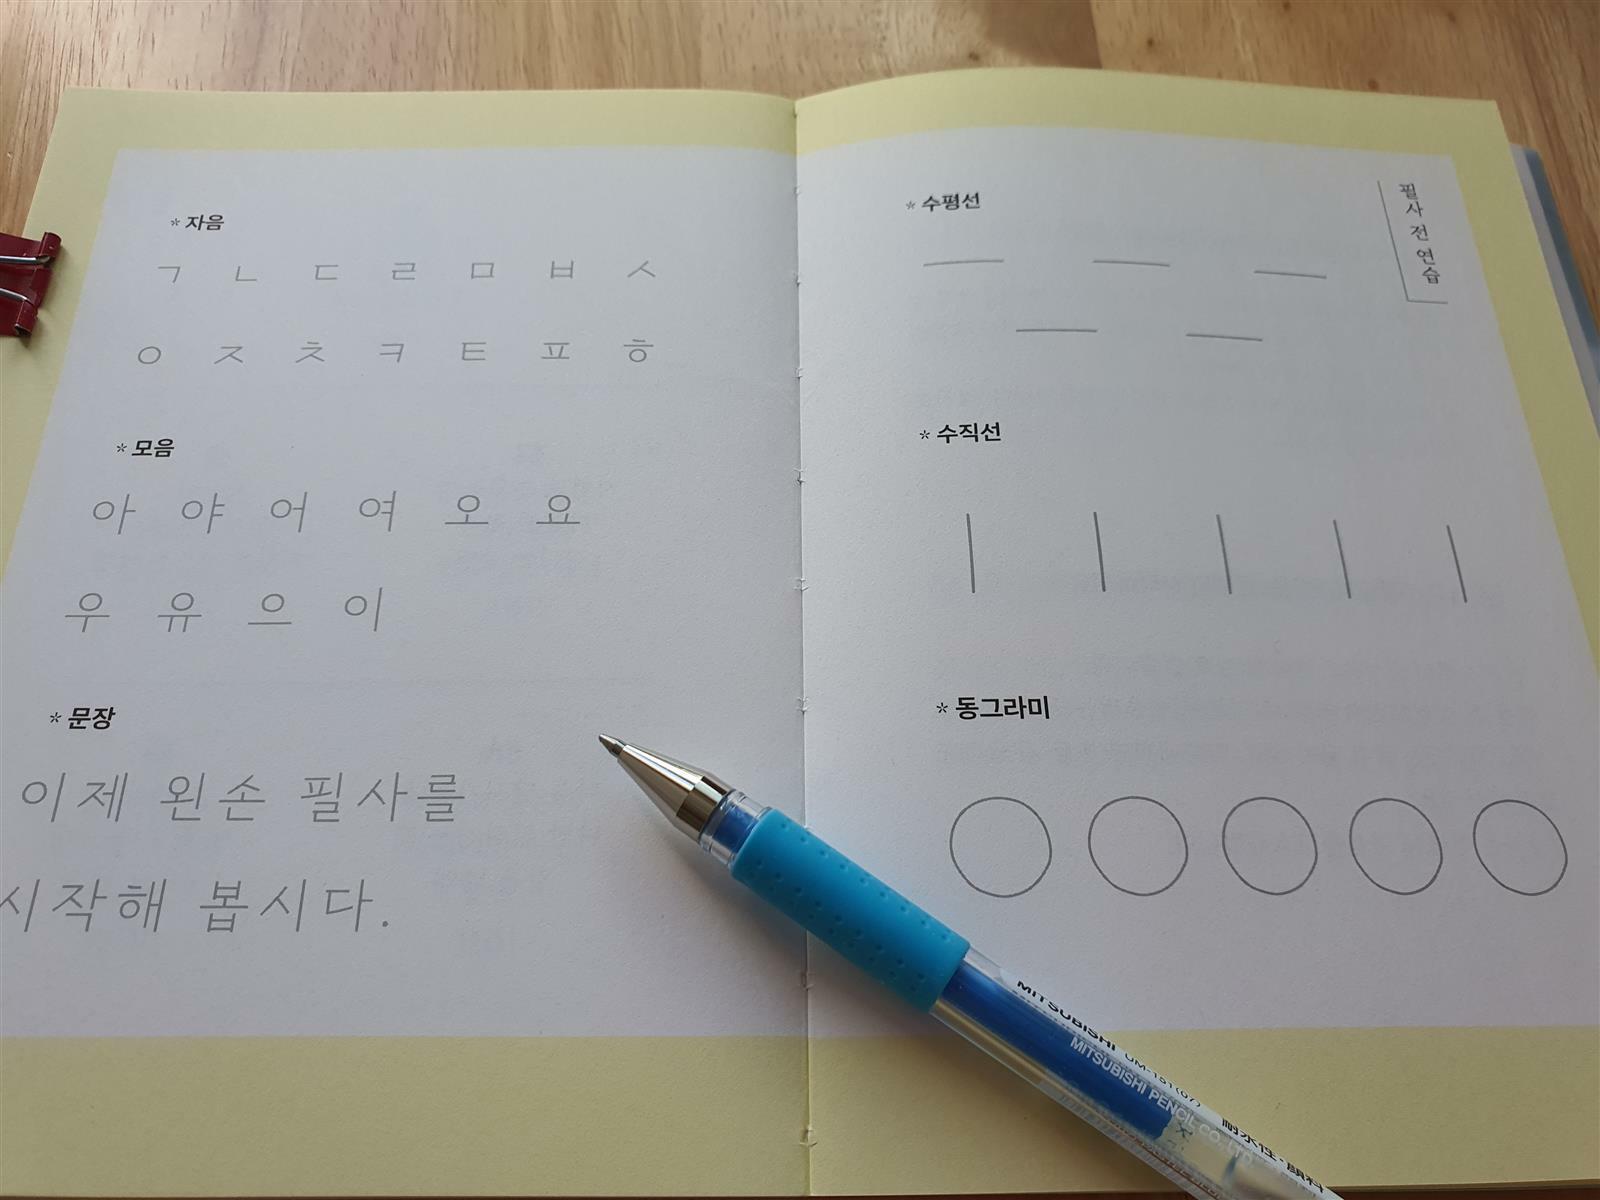 * 자음
ㄱ ㄴ ㄷ ㄹ ㅁ ㅂ ㅅ
ㅇ ㅈ ㅊ ㅋ ㅌ ㅍ ㅎ
* 모음
아 야 어 여 오 요
우 유 으 이
* 문장
이제 왼손 필사를
시작해 봅시다.
필사 전 연습
* 수평선
* 수직선
* 동그라미
MITSUBISHI UM-151(07) 耐水性·顔料
MITSUBISHI PENCIL CO., LTD.